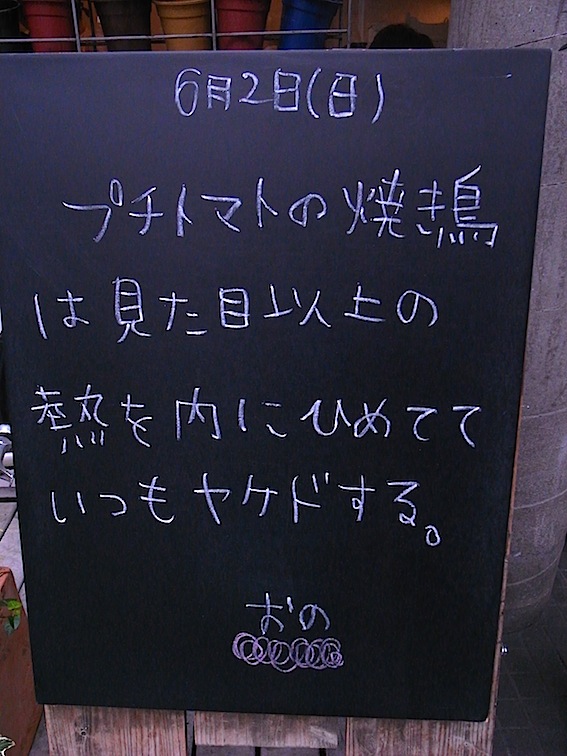 6月2日(日)
プチトマトの焼き鳥
は見た目以上の
熱を内にひめてて
いつもヤケドする。
おの